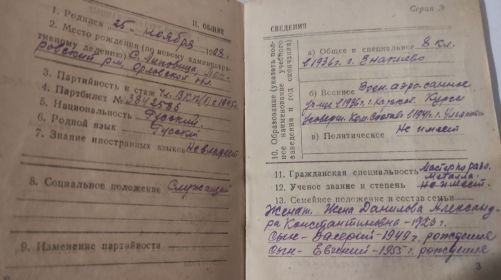 II. ОБЩИЕ
1. Родился 25 ноября
2. Место рождения (по новому админист-
ративному делению) с. Липовица
ровский р-н Орловской
3. Партийность и стаж Чл. ВКП(б) с 1945 г.
4. Партбилет №
5. Национальность Русский
6. Родной язык Русский
7. Знание иностранных языков Не владеет
8. Социальное положение Служащий
9. Изменение партийности
Серия Э
СВЕДЕНИЯ
10. Образование (указать полное наименование учебного заведения и год окончания)
а) Общее и специальное 8 кл.
в 1926 г. г.
б) Военное
г. Курсы
в) Политическое Не имеет
11. Гражданская специальность Мастер по
металла.
12. Ученое звание и степень не имеет.
13. Семейное положение и состав семьи
Женат. Жена Данилова Александ-
ра Константиновна - г.
Сын - Валерий - 1949 г. рождения
Сын - Евгений - 1955 г. рождения
3